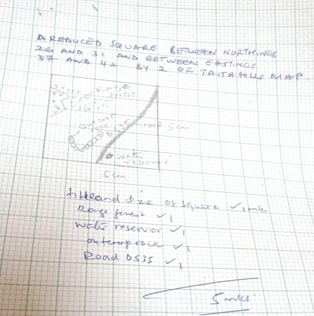 A REDUCED SQUARE BETWEEN NORTHINGS
26 AND 31 AND BETWEEN EASTINGS
37 AND 42 BY 2 OF TAITA HILLS MAP.
outcrop
5cm
water
reservoir
5cm
title and size of square ✓1mk
Range forest ✓1
Water reservoir ✓1
outcrop rock ✓1
Road D535 ✓1
5mks